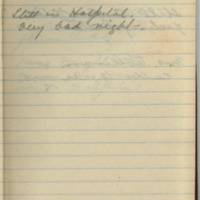 Still in Hospital.
Very bad night -